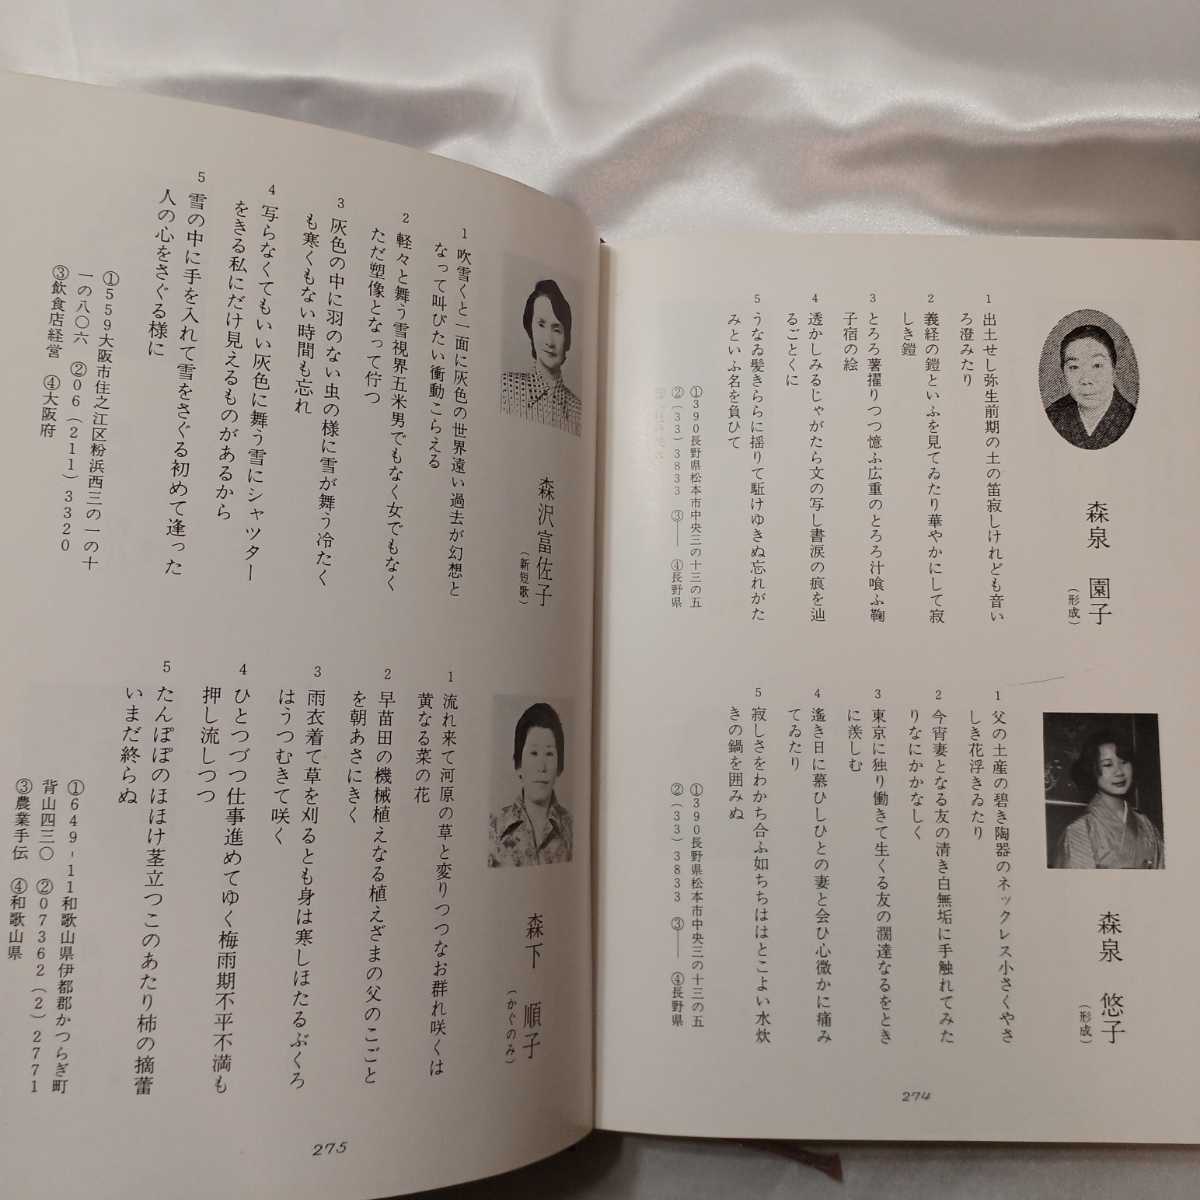 森泉 園子
(形成)
1 出土せし弥生前期の土の笛寂しけれども音い
ろ澄みたり
2 義経の鎧といふを見てゐたり華やかにして寂
しき鎧
3 とろろ薯擢りつつ憶ふ広重のとろろ汁喰ふ鞠
子宿の絵
4 透かしみるじゃがたら文の写し書涙の痕を辿
るごとくに
5 うなゐ髪きららに揺りて駈けゆきぬ忘れがた
みといふ名を負ひて
①390長野県松本市中央三の十三の五
②(33)3833 ③── ④長野県
森泉 悠子
(形成)
1 父の土産の碧き陶器のネックレス小さくやさ
しき花浮きゐたり
2 今宵妻となる友の清き白無垢に手触れてみた
りなにかかなしく
3 東京に独り働きて生くる友の潤達なるをとき
に羨しむ
4 遙き日に慕ひしひとの妻と会ひ心微かに痛み
てゐたり
5 寂しさをわかち合ふ如ちちははとこよい水炊
きの鍋を囲みぬ
①390長野県松本市中央三の十三の五
②(33)3833 ③── ④長野県
274
森沢富佐子
(新短歌)
1 吹雪くと一面に灰色の世界遠い過去が幻想と
なって叫びたい衝動こらえる
2 軽々と舞う雪視界五米男でもなく女でもなく
ただ塑像となって佇つ
3 灰色の中に羽のない虫の様に雪が舞う冷たく
も寒くもない時間も忘れ
4 写らなくてもいい灰色に舞う雪にシャッター
をきる私にだけ見えるものがあるから
5 雪の中に手を入れて雪をさぐる初めて逢った
人の心をさぐる様に
①559大阪市住之江区粉浜西三の一の十
一の八〇六 ②06(211)3320
③飲食店経営 ④大阪府
森下 順子
(かぐのみ)
1 流れ来て河原の草と変りつつなお群れ咲くは
黄なる菜の花
2 早苗田の機械植えなる植えざまの父のこごと
を朝あさにきく
3 雨衣着て草を刈るとも身は寒しほたるぶくろ
はうつむきて咲く
4 ひとつづつ仕事進めてゆく梅雨期不平不満も
押し流しつつ
5 たんぽぽのほほけ茎立つこのあたり柿の摘蕾
いまだ終らぬ
①649-11和歌山県伊都郡かつらぎ町
背山四三〇 ②07362(2)2771
③農業手伝 ④和歌山県
275